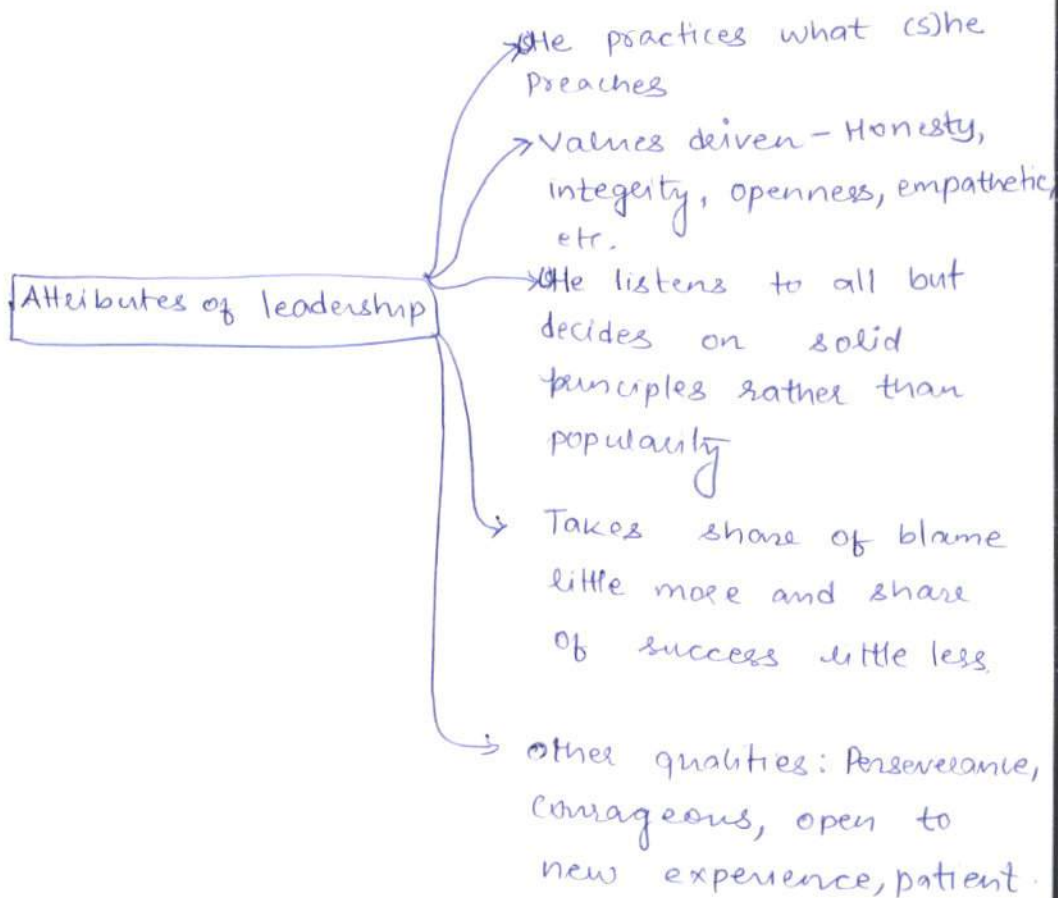 (s)He practices what (s)he
preaches
Values driven - Honesty,
integrity, openness, empathetic,
etc.
(s)He listens to all but
decides on solid
principles rather than
popularity
Attributes of leadership
Takes share of blame
little more and share
of success little less.
Other qualities: Perseverance,
Courageous, open to
new experience, patient.